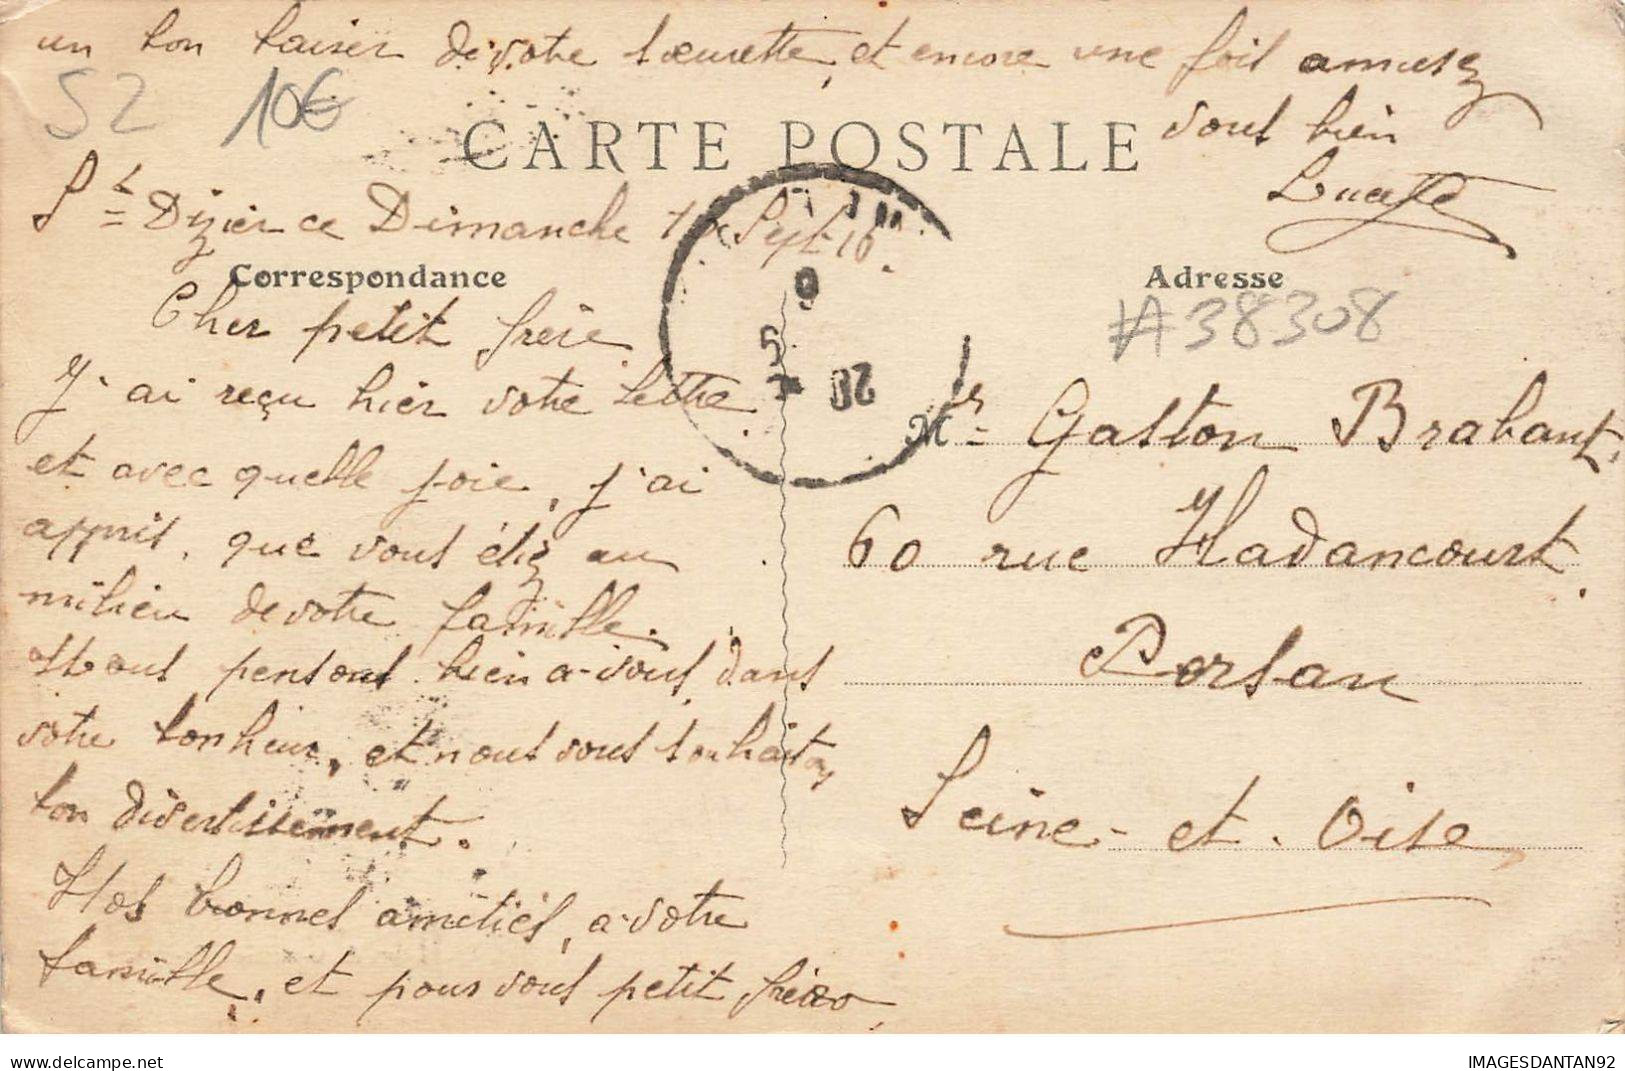 un bon baiser de votre sœurette, et encore une fois amusez
vous bien
Lucette
52 10€
CARTE POSTALE
St Dizier ce Dimanche Sept 16.
Correspondance
Adresse
#A38308
Cher petit frère
J'ai reçu hier votre lettre
et avec quelle joie, j'ai
appris, que vous étiez au
milieu de votre famille.
Nous pensons bien a-vous, dans
votre bonheur, et nous vous souhaitons
bon divertissement.
Nos bonnes amitiés, a-votre
famille, et pour vous petit frère
Mr Gaston Brabant,
60 rue Hadancourt.
Persan
Seine-et-Oise
IMAGESDANTAN92
images-delcampe.net